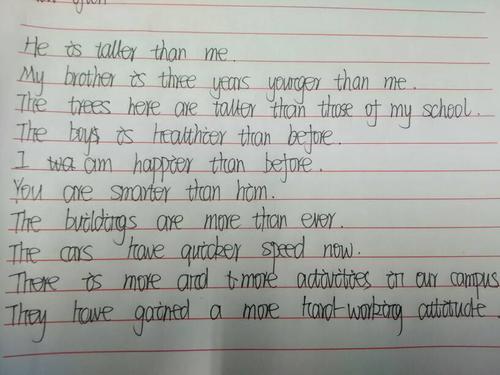 He is taller than me.
My brother is three years younger than me.
The trees here are taller than those of my school.
The boys is healthier than before.
I wa am happier than before.
You are smarter than him.
The buildings are more than ever.
The cars have quicker speed now.
There is more and t more activities in our campus
They have gained a more hard-working attitude.